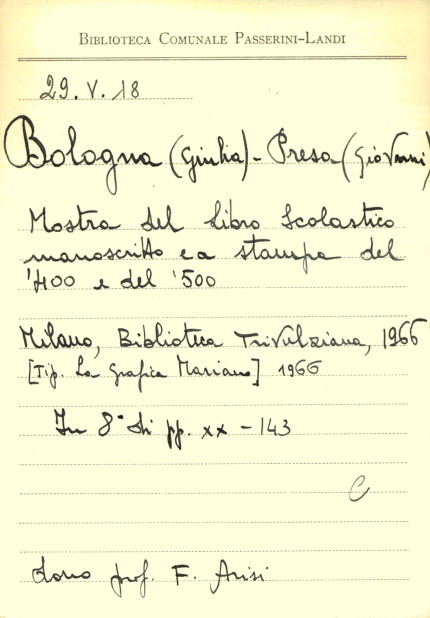 BIBLIOTECA COMUNALE PASSERINI-LANDI
29. V. 18
Bologna (Giulia) - Presa (Giovanni)
Mostra del libro scolastico
manoscritto e a stampa del
'400 e del '500
Milano, Biblioteca Trivulziana, 1966
[Tip. La Grafica Mariano] 1966
In 8° di pp. xx - 143
C
dono prof. F. Arisi